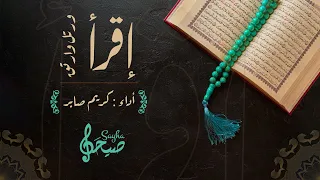 إقرأ
ورتل وارتق
أداء : كريم صابر
Sayha
صيحة